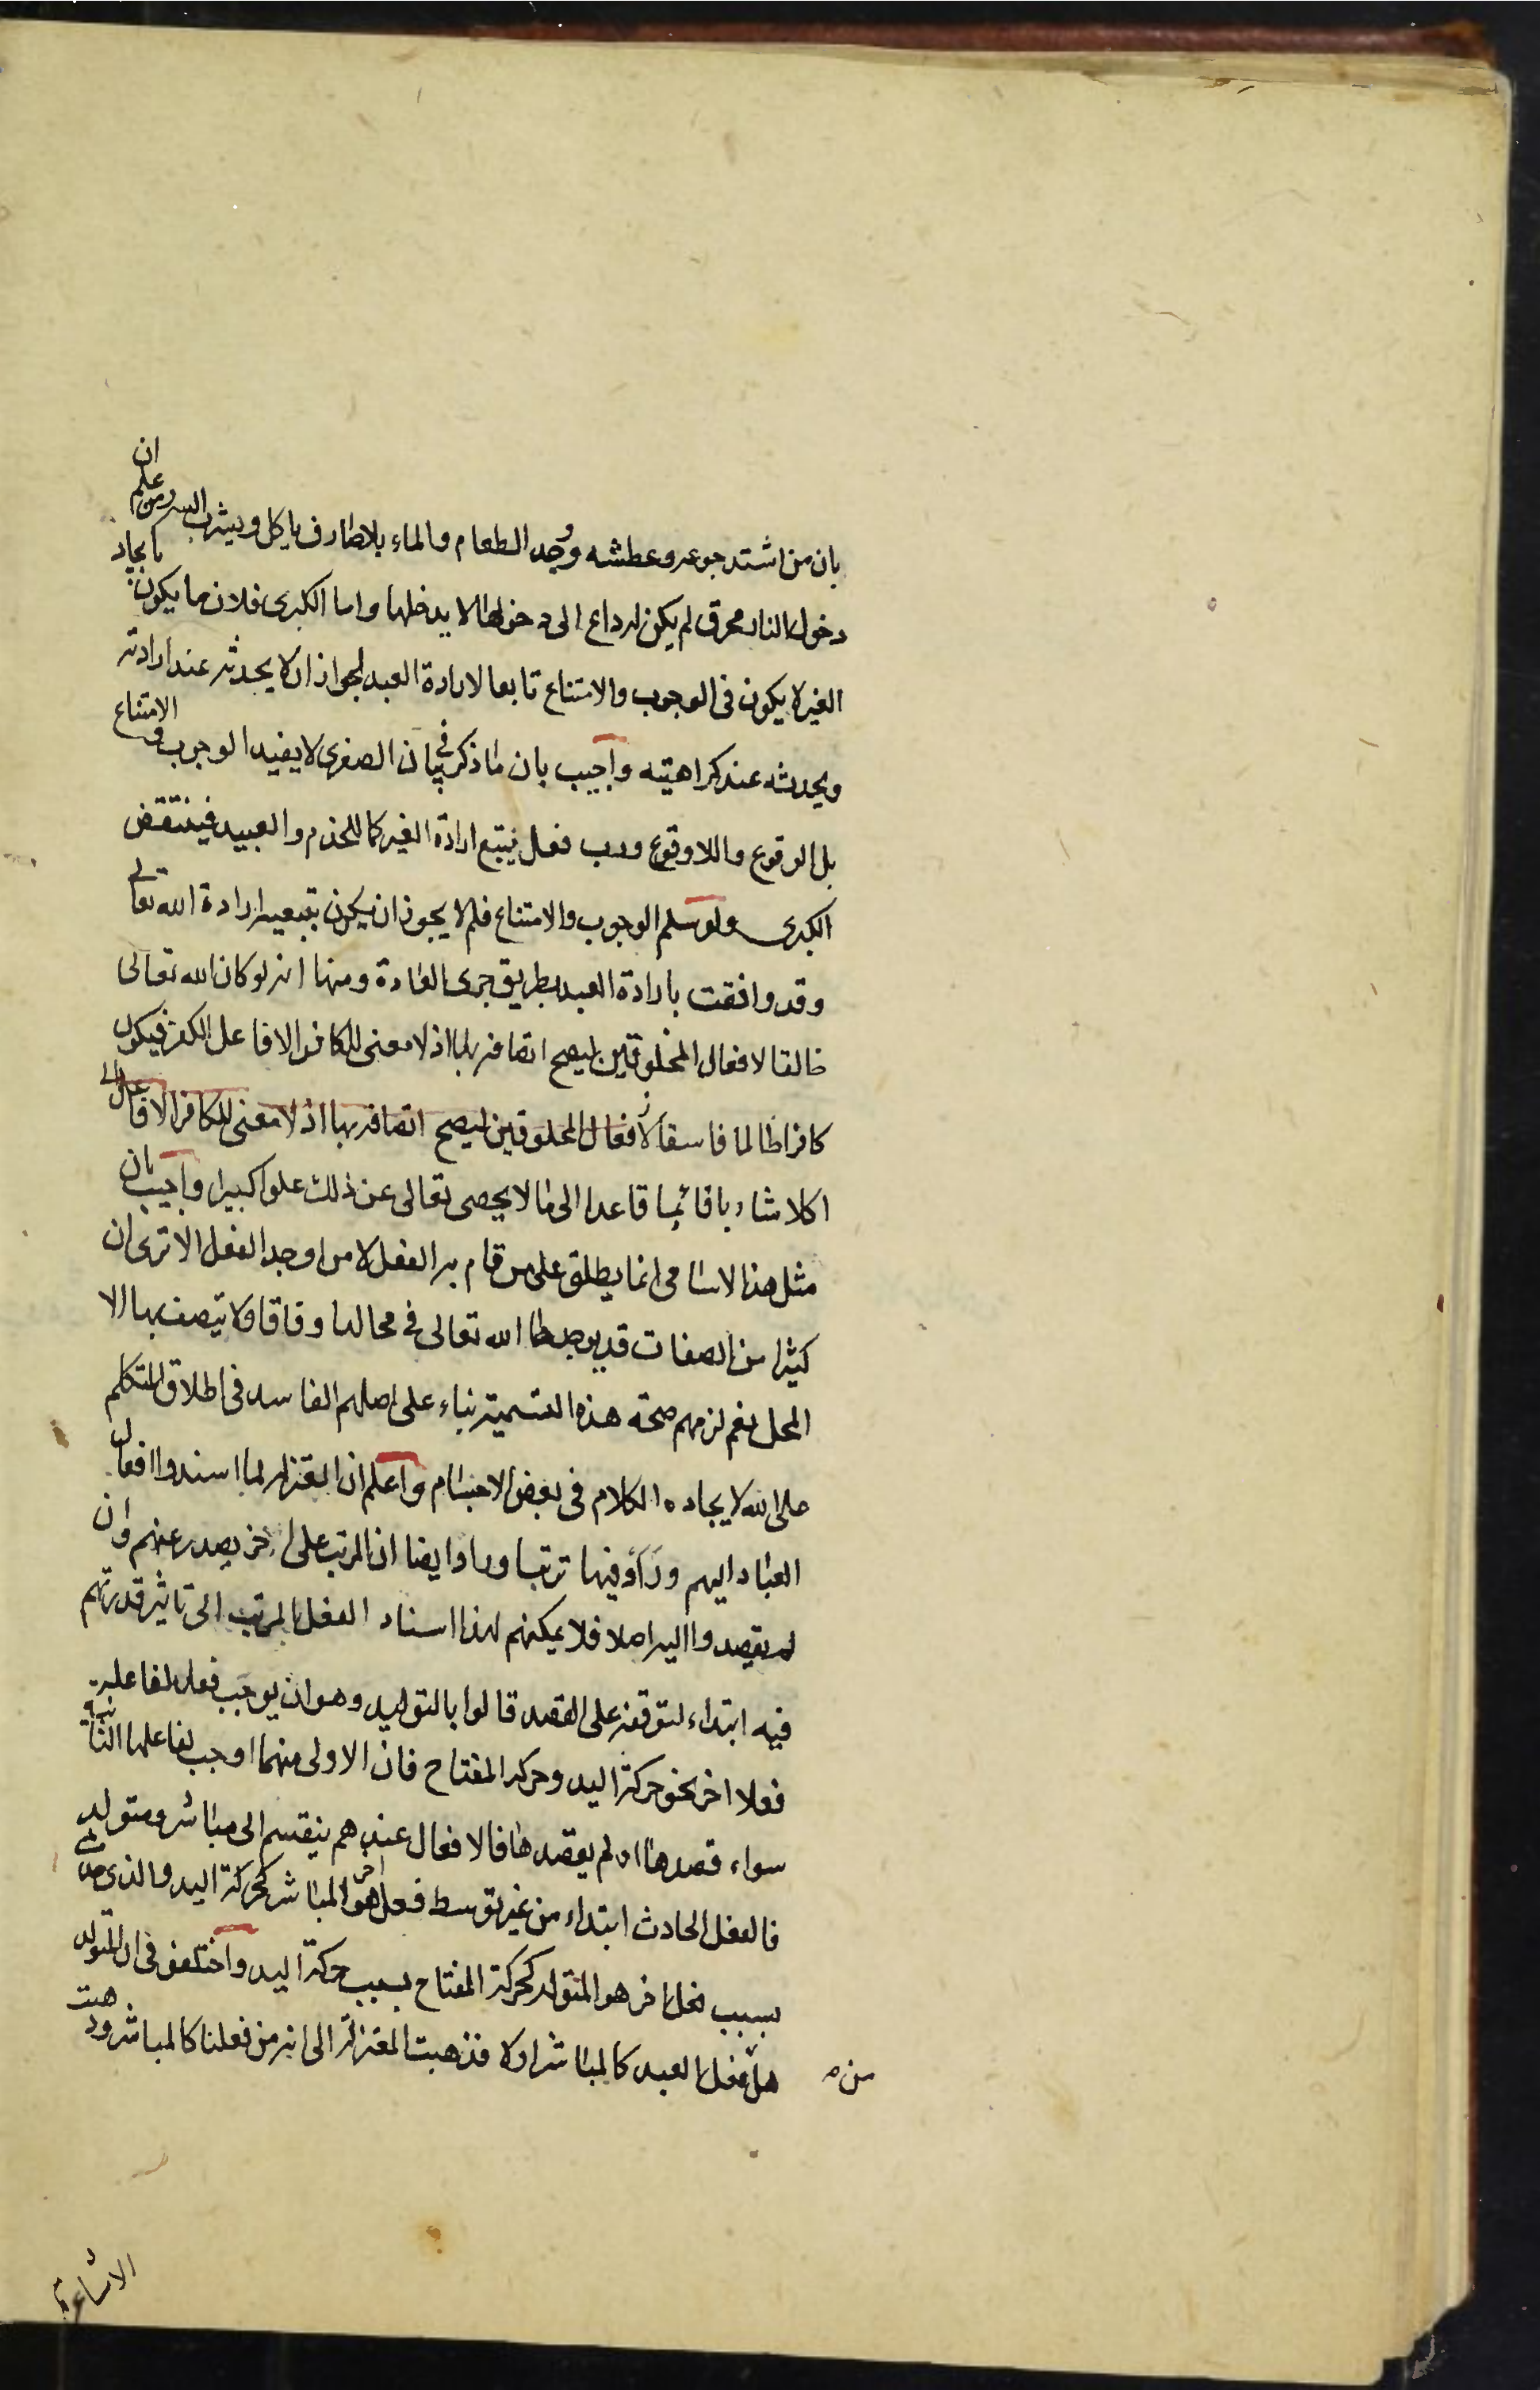 بان من اشتد جوعه وعطشه ووجد الطعام والماء بلا صارف ياكل ويشرب البته ومن علم ان
دخول النار محرق لم يكن له داع الى دخولها لا يدخلها واما الكبرى فلان ما يكون بايجاد
الغير لا يكون فى الوجوب والامتناع تابعا لارادة العبد لجواز ان لا يحدثه عند ارادته
ويحدثه عند كراهيته واجيب بان ما ذكر فى بيان الصغرى لا يفيد الوجوب والامتناع
بل الوقوع واللاوقوع ورب فعل يتبع ارادة الغير كما للخدم والعبيد فينتقض
الكبرى ولو سلم الوجوب والامتناع فلم لا يجوز ان يكون بتبعية ارادة الله تعالى
وقد وافقت بارادة العبد بطريق جرى العادة ومنها انه لو كان الله تعالى
خالقا لافعال المخلوقين ليصح اتصافه بها اذ لا معنى للكافر الا فاعل الكفر فيكون
كافرا ظالما فاسقا لافعال المخلوقين ليصح اتصافه بها اذ لا معنى للكافر الا فاعل
اكلا شاربا قائما قاعدا الى ما لا يحصى تعالى عن ذلك علوا كبيرا واجيب بان
مثل هذا الاسامى انما يطلق على من قام به الفعل لا من اوجد الفعل الا ترى ان
كثيرا من الصفات قد يوجدها الله تعالى فى محالها وفاقا ولا يتصف بها الا
المحل نعم لزمهم صحة هذه التسمية بناء على اصلهم الفاسد فى اطلاق المتكلم
على الله لايجاده الكلام فى بعض الاجسام واعلم ان المعتزلة لما اسندوا افعال
العباد اليهم وراوا فيها ترتبا وراوا ايضا ان المرتب على اخر يصدر عنهم وان
لم يقصدوا اليه اصلا فلا يمكنهم لهذا اسناد الفعل المرتب الى تاثير قدرتهم
فيه ابتداء لتوقفه على القصد قالوا بالتوليد وهو ان يوجب فعل لفاعله
فعلا اخر نحو حركة اليد وحركة المفتاح فان الاولى منهما اوجب لفاعلها الثانية
سواء قصدها او لم يقصدها فالافعال عندهم ينقسم الى مباشر ومتولد
فالفعل الحادث ابتداء من غير توسط فعل اخر هو المباشر كحركة اليد والذى
بسبب فعل اخر هو المتولد كحركة المفتاح بسبب حركة اليد واختلفوا فى ان المتولد
هل من فعل العبد كالمباشر اولا فذهبت المعتزلة الى انه من فعلنا كالمباشر وذهبت
الاشاعرة